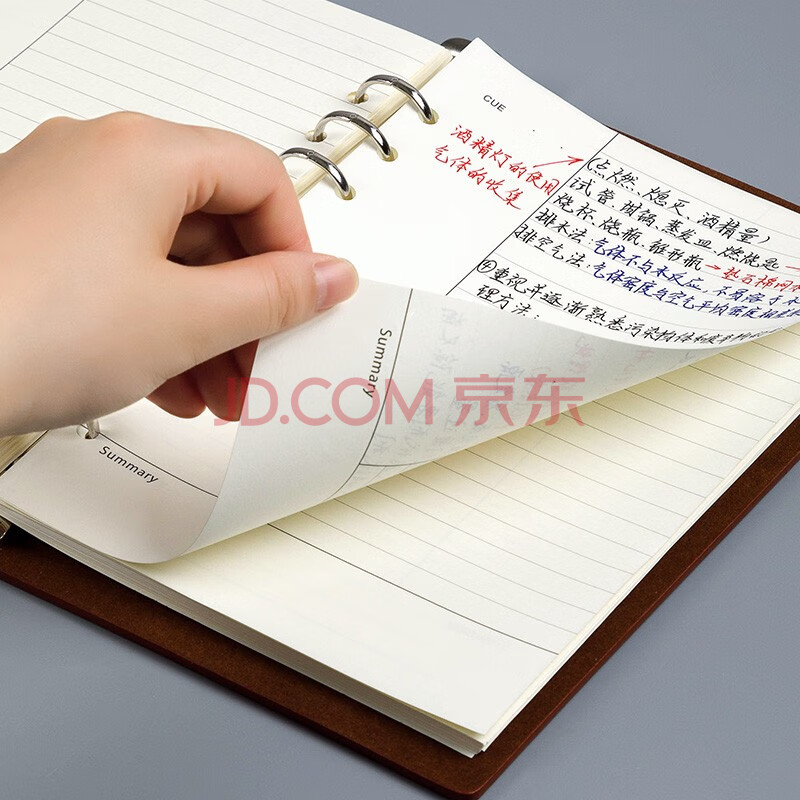 CUE
酒精灯的使用
气体的收集
(点燃、熄灭、酒精量)
试管、坩埚、蒸发皿 燃烧匙
烧杯、烧瓶、锥形瓶→垫石棉网
排水法:气体不与水反应,不易溶于水
排空气法:气体密度与空气平均密度相差
④重视并逐渐熟悉污染物
理方法:
Summary
JD.COM 京东
Summary